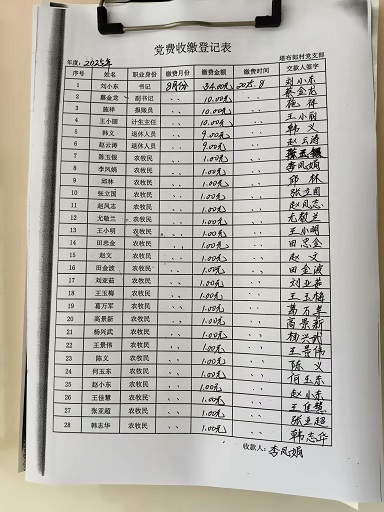 党费收缴登记表
年度：2025年 塔布郎村党支部
序号 姓名 职业身份 缴费月份 缴费金额 缴费时间 交款人签字
1 刘小东 书记 8月份 34.00元 2025.8 刘小东
2 蔡金龙 副书记 〃 10.00元 〃 蔡金龙
3 施祥 报账员 〃 10.00元 〃 施祥
4 王小丽 计生主任 〃 10.00元 〃 王小丽
5 韩义 退休人员 〃 9.00元 〃 韩义
6 赵云涛 退休人员 〃 9.00元 〃 赵云涛
7 陈玉银 农牧民 〃 1.00元 〃 陈玉银
8 李凤娟 农牧民 〃 1.00元 〃 李凤娟
9 邱林 农牧民 〃 1.00元 〃 邱林
10 张立国 农牧民 〃 1.00元 〃 张立国
11 赵凤志 农牧民 〃 1.00元 〃 赵凤志
12 尤敬兰 农牧民 〃 1.00元 〃 尤敬兰
13 王小明 农牧民 〃 1.00元 〃 王小明
14 田忠金 农牧民 〃 1.00元 〃 田忠金
15 赵文 农牧民 〃 1.00元 〃 赵文
16 田金波 农牧民 〃 1.00元 〃 田金波
17 刘亚茹 农牧民 〃 1.00元 〃 刘亚茹
18 王玉梅 农牧民 〃 1.00元 〃 王玉梅
19 葛万军 农牧民 〃 1.00元 〃 葛万军
20 高景新 农牧民 〃 1.00元 〃 高景新
21 杨兴武 农牧民 〃 1.00元 〃 杨兴武
22 王景伟 农牧民 〃 1.00元 〃 王景伟
23 陈义 农牧民 〃 1.00元 〃 陈义
24 何玉东 农牧民 〃 1.00元 〃 何玉东
25 赵小东 农牧民 〃 1.00元 〃 赵小东
26 王佳慧 农牧民 〃 1.00元 〃 王佳慧
27 张亚超 农牧民 〃 1.00元 〃 张亚超
28 韩志华 农牧民 〃 1.00元 〃 韩志华
收款人：李凤娟